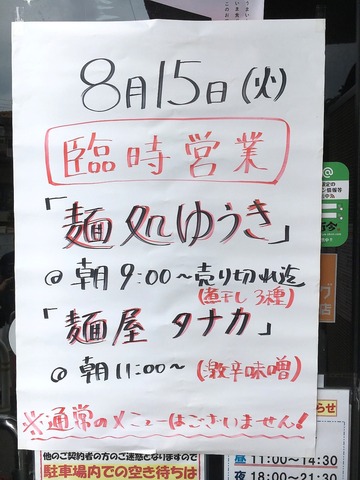 8月15日(火)
臨時営業
「麺処ゆうき」
@ 朝9:00〜売り切れ迄
(煮干し3種)
「麺屋 タナカ」
@ 朝11:00〜 (激辛味噌)
※通常のメニューはございません!
他のご契約者の方のご迷惑となりますので
駐車場内での空き待ちは
らせ
昼 11:00〜14:30
夜 18:00〜21:30